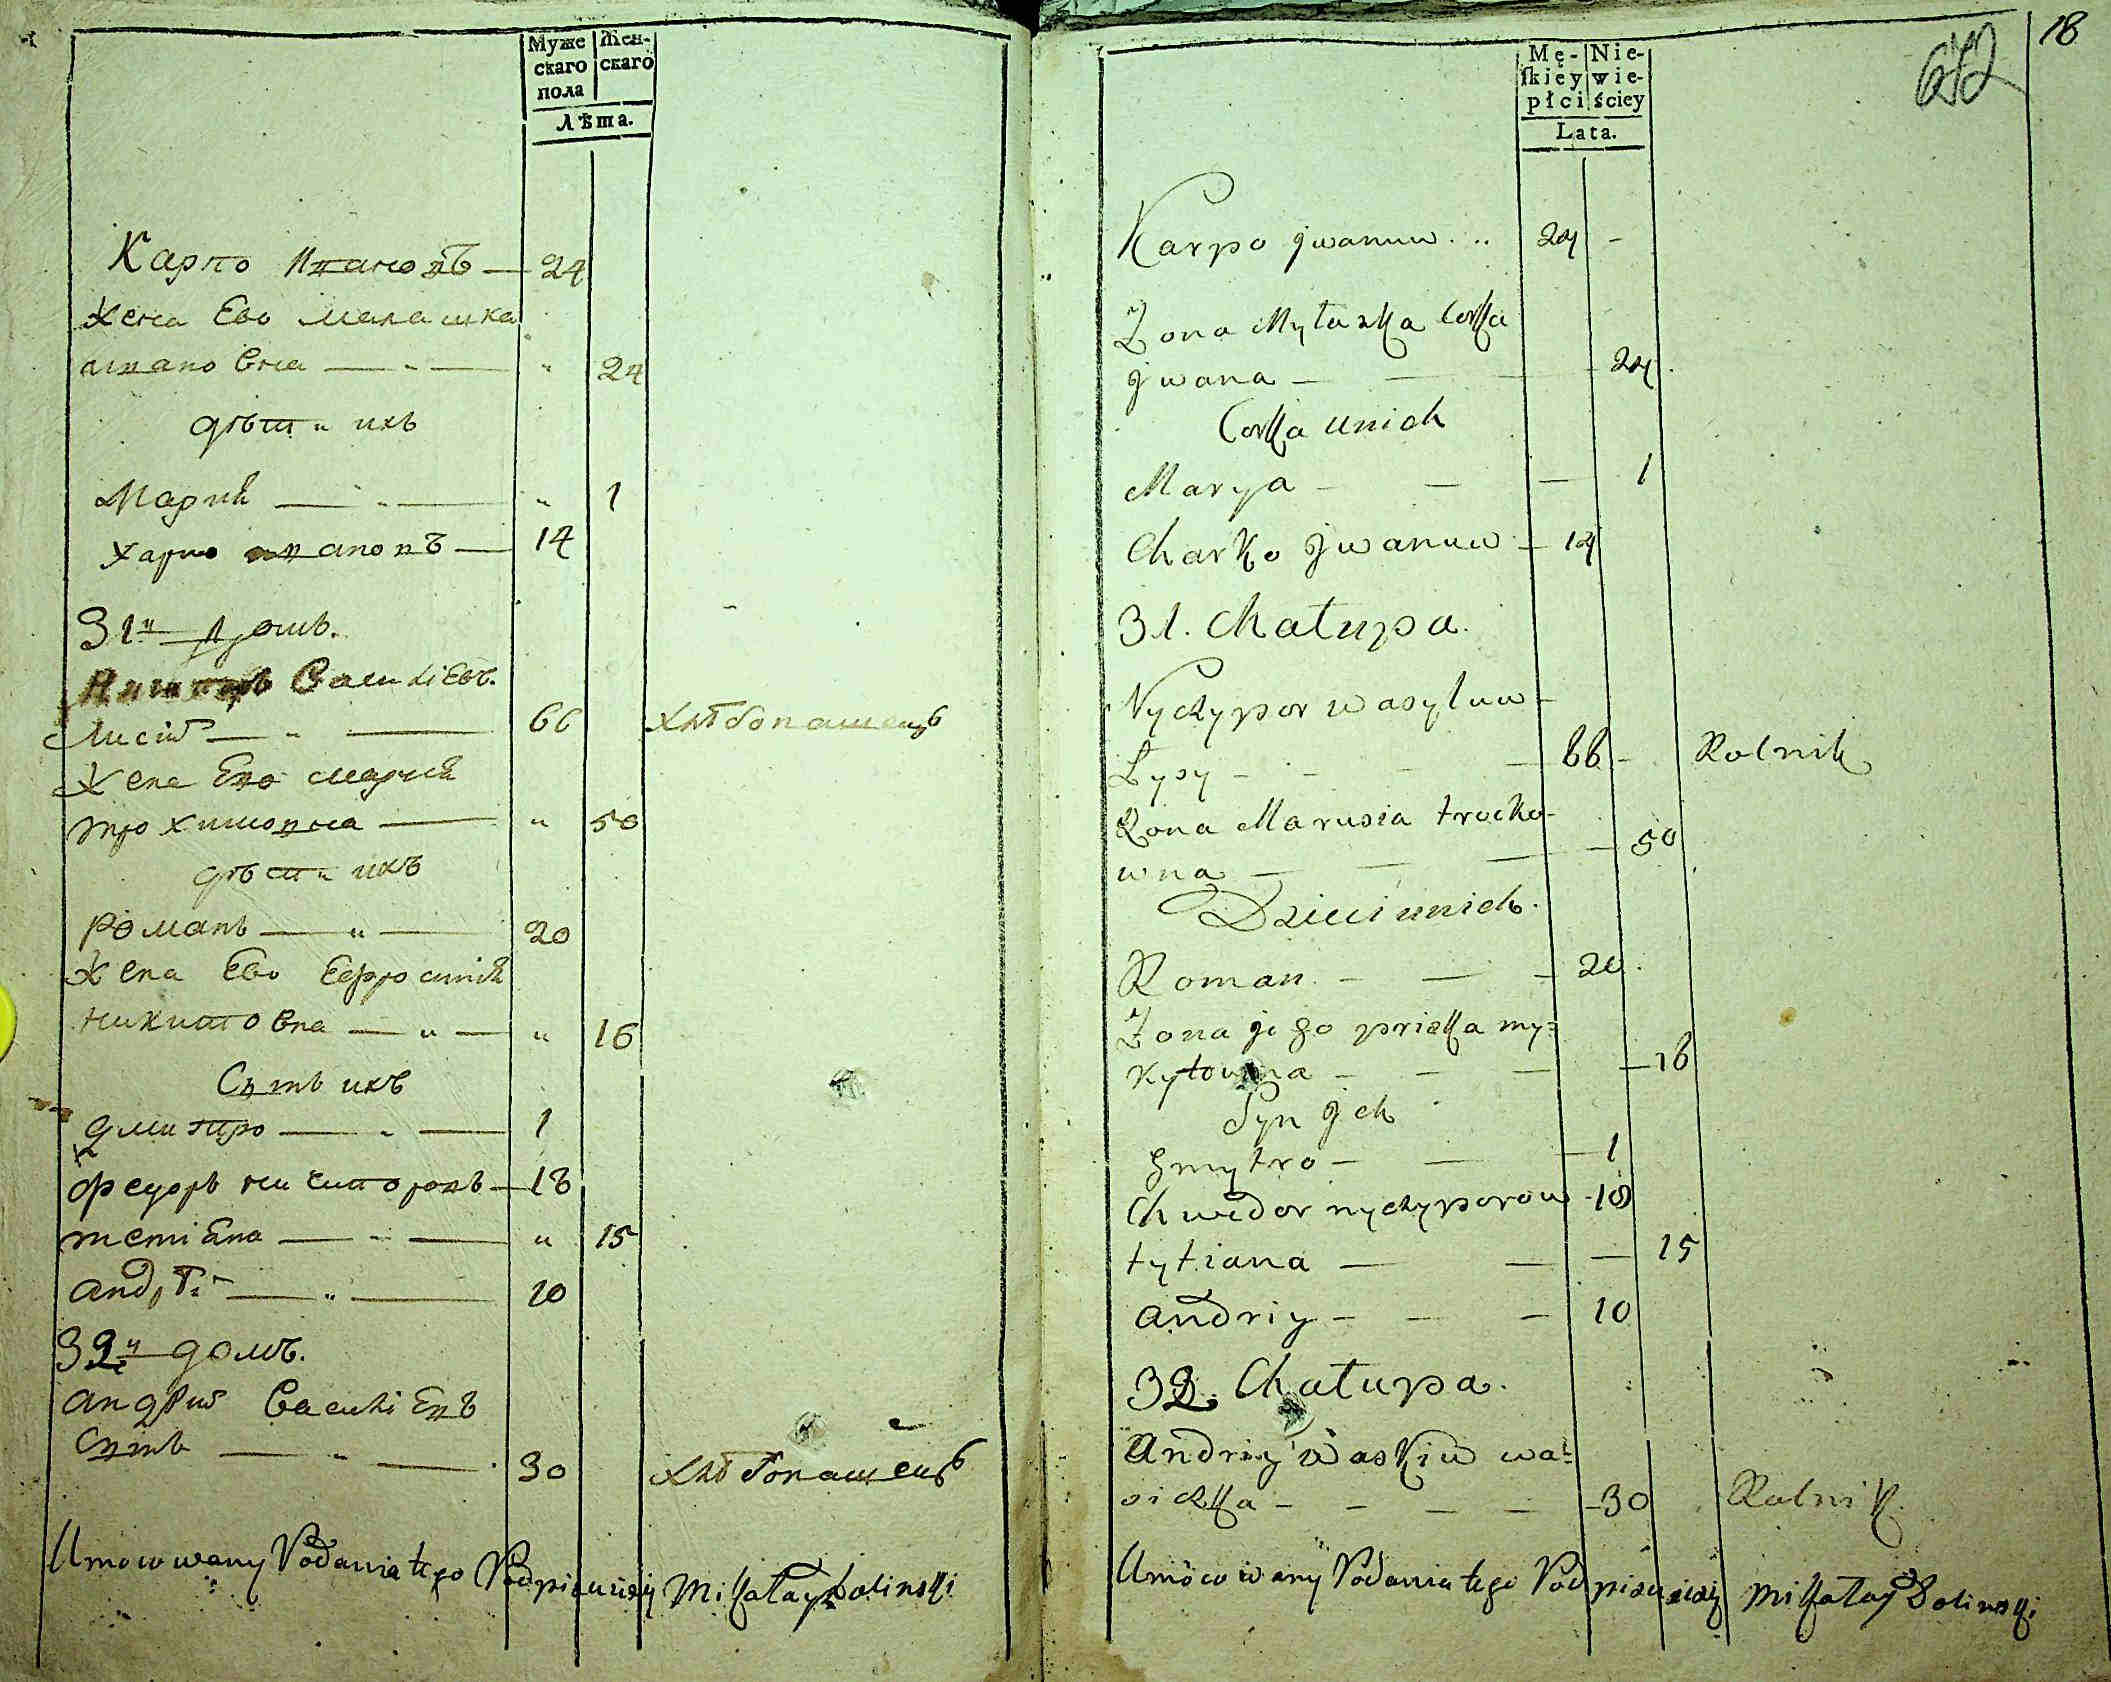 Муже
скаго
пола
Жен-
скаго
Лѣта.
Карпо Ивановъ — 24
Жена Ево малашка
ивановна — " — " 24
дѣти ихъ
Марий — " — " 1
харко ивановъ — 14
31й домъ.
Василіевъ.
Лисій — " — 66 хлѣбопашецъ
Жена Ево марий
трохимовна — " 50
дѣти ихъ
Романъ — " — 20
Жена Ево Еѳросиній
никитовна — " — " 16
Сынъ ихъ
дмитро — " — 1
Федоръ ничипоровъ — 18
тетіяна — " — " 15
андрѣй — " — 10
32й домъ.
андрѣй Василіевъ
Сынъ — " — 30 хлѣбопашецъ
Umocowany Podania tego Podpisuiesię Mikołay Dolinski
18
672
Mę-
skiey
płci
Nie-
wie-
ściey
Lata.
Karpo Jwanuw . .. 24 -
Żona Myłaszka Corka
Jwana — — — 24.
Corka unich
Marya - — — 1
Charko Jwanuw — 14
31. Chałupa.
Nyczypor wasyluw -
Łysy - - - — 66 - Rolnik
Zona Marusia trocho-
wna — — — 50
Dzieci unich.
Roman - — - 20.
Żona jego pryska my-
kytowna - - — — 16
Syn Jch
Dmytro - — — 1
Chwedor nyczyporow - 18
tytiana — — — 15
andriy - — — 10
32. Chałupa.
Andriy Waskiw wa-
siczka - - — — - 30 Rolnik.
Umocowany Podania tego Podpisuiesię Mikołay Dolinski